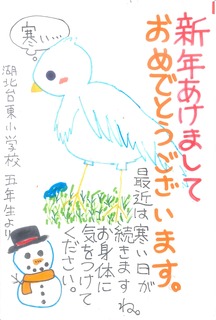 新年あけまして
おめでとうございます。
寒い…
最近は寒い日が
続きますね。
お身体に
気をつけて
ください。
湖北台東小学校 五年生より